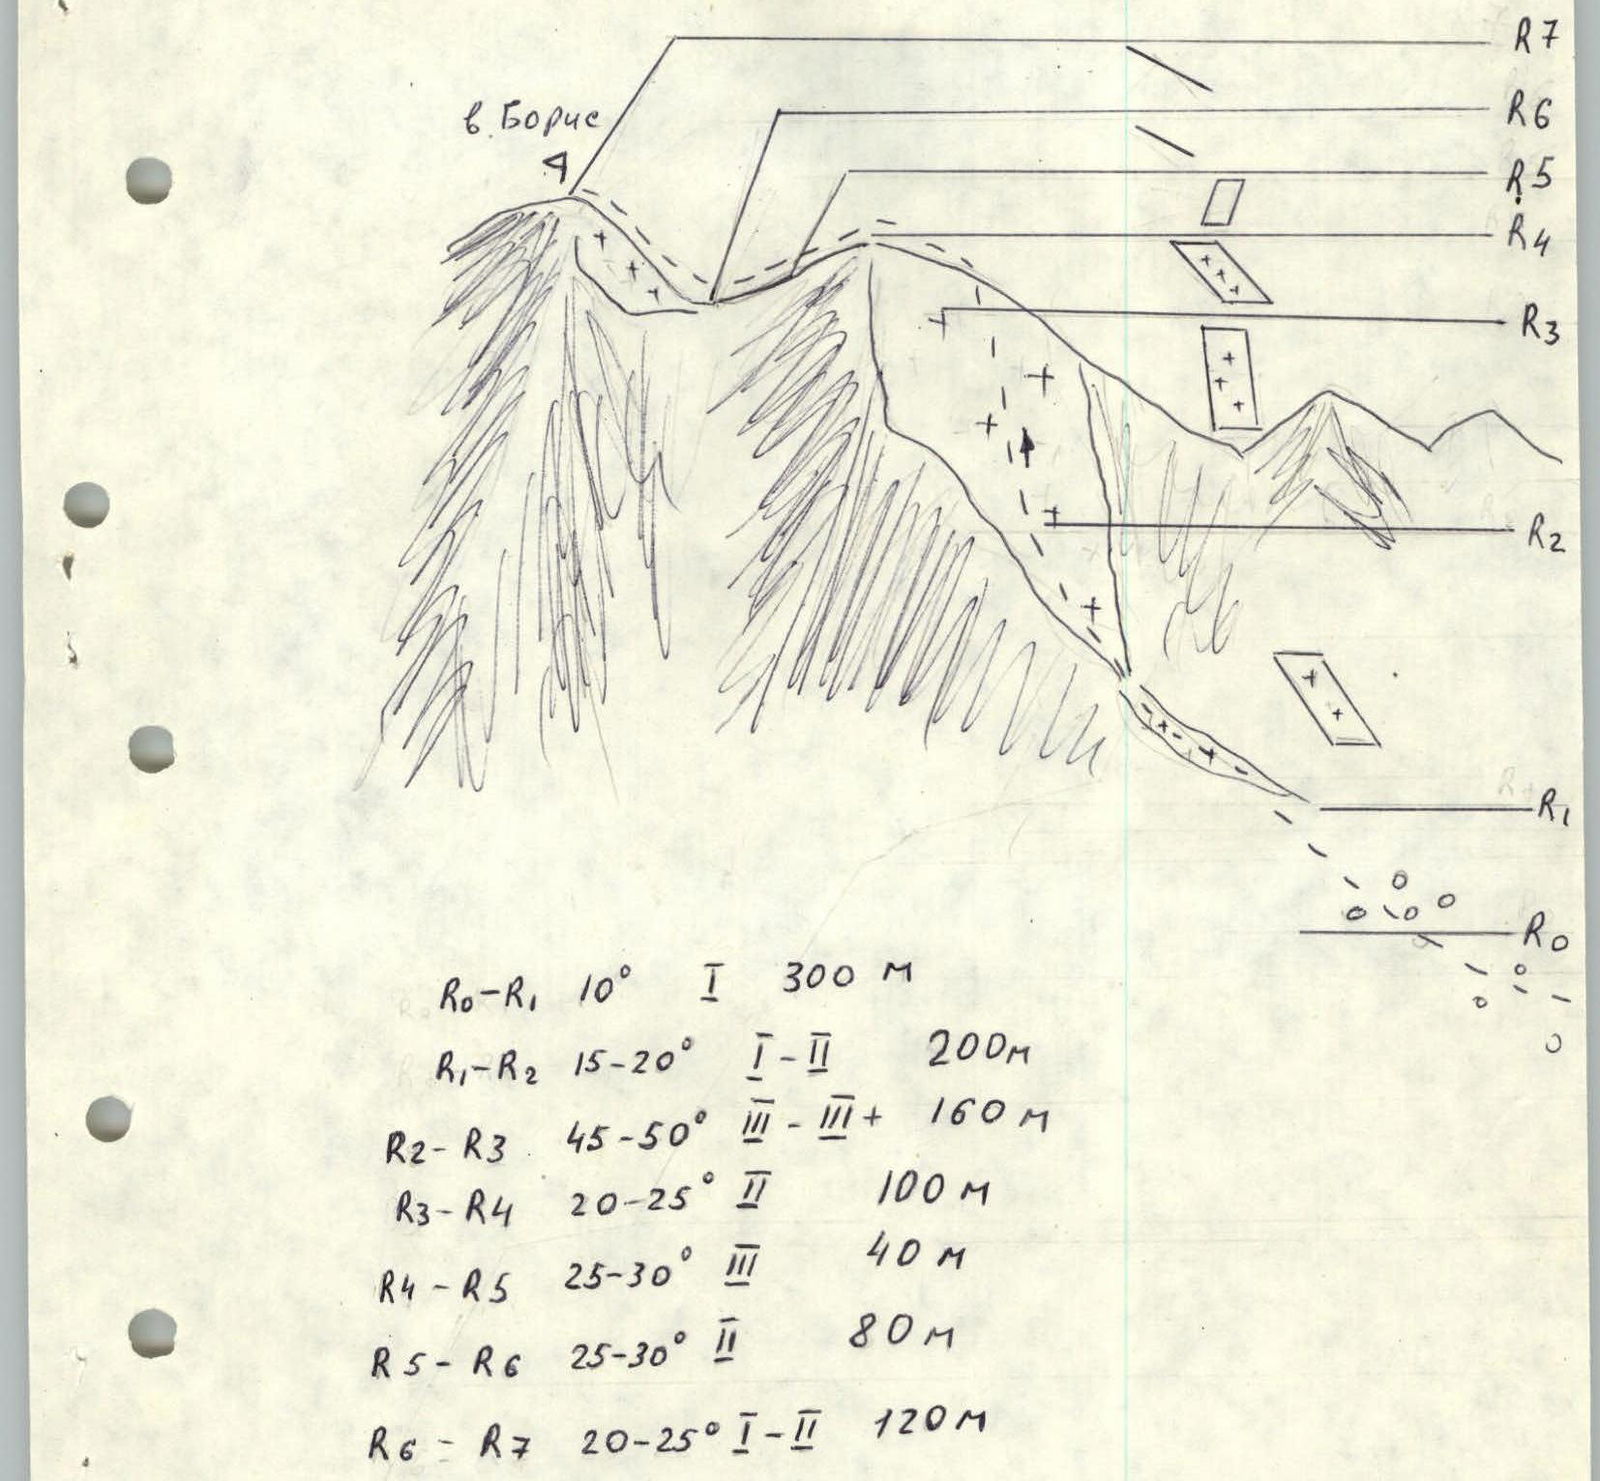 R7
в. Борис
R6
R5
R4
R3
R2
R1
R0
R0-R1 10° I 300 м
R1-R2 15-20° I-II 200м
R2-R3 45-50° III-III+ 160 м
R3-R4 20-25° II 100 м
R4-R5 25-30° III 40 м
R5-R6 25-30° II 80 м
R6-R7 20-25° I-II 120 м